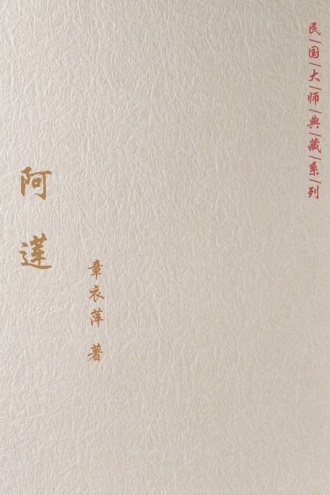 民国大师典藏系列
阿莲
章衣萍 著